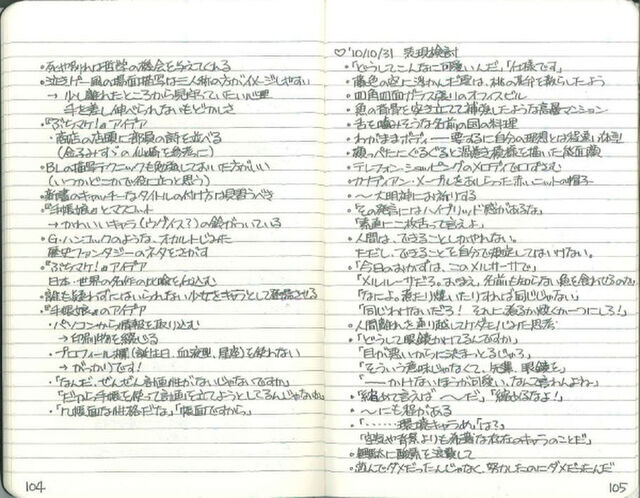 ・死や別れは哲学の機会を与えてくれる
・泣きゲー風の場面描写は三人称の方がイメージしやすい
→ 少し離れたところから見守っていたい心理
手を差し伸べられないもどかしさ
・『ぷちマケ!』のアイデア
・商店の店頭に部員の詩を並べる
(金子みすゞの仙崎を参考に)
・BLの描写テクニックも勉強しておいた方がいい
(いつかどこかで役に立つと思う)
・新書のキャッチーなタイトルの付け方は見習うべき
・『手帳娘』のマスコット
→ かわいいキャラ(ウグイス?)の鈴がついている
・G・ハンコックのような、オカルトじみた
歴史ファンタジーのネタをさがす
・『ぷちマケ!』のアイデア
日本・世界の名作の比喩を仕込む
・誰も疑わずにはいられない少女をキャラとして登場させる
・『手帳娘』のアイデア
・パソコンから情報を取り込む
→ 印刷物を綴じる
・プロフィール欄(誕生日、血液型、星座)を使わない
→ がっかりです!
・「なんだ、ぜんぜん計画性がないじゃないですか」
「だから手帳を使って計画を立てようとしてるんじゃないか」
・「几帳面な性格だな」「帳面ですから」
104
♡'10/10/31 表現検討
・「どうしてこんなに可愛いんだ」「仕様です」
・四角四面ガラス張りのオフィスビル
・魚の背骨を突き立てて補強したような高層マンション
・舌を噛みそうな名前の国の料理
・わがままボディー――要するに自分の理想とは程遠い体型
・頬っぺたにぐるぐると渦巻き模様を描いた能面顔
・テレフォン・ショッピングのメロディで口ずさむ
・カナディアン・メープルをあしらった赤いニットの帽子
・〜大明神にお祈りする
・「その発言にはハイブリッド感があるな」
「素直に二枚舌って言えよ」
・人間は、できることしかやれない。
ただし、できることを自分で限定してはいけない。
・「今日のおかずは、このメルルーサで」
「メルルーサだろ。まぁ、名前も知らない魚を食わせるのな」
「なによ。煮たり焼いたりすれば同じじゃない」
「同じわけないだろ! それに煮るか焼くか一つにしろ!」
・人間離れを通り越してケダモノじみた思考
・「どうして眼鏡かけてるんですか」
「目が悪いからに決まっとるじゃろ」
「そういう意味じゃなくて、先輩、眼鏡を」
「――かけないほうが可愛い、なんて言わんよね」
・「縮めて言えば〜だ」「縮めるなよ!」
・〜にも程がある
・「……環境キャラめ」「は?」
「空気や背景よりも希薄な存在のキャラのことだ」
・無駄に酸素を浪費して
・遊んでダメだったんじゃなく、努力したのにダメだったんだ
105